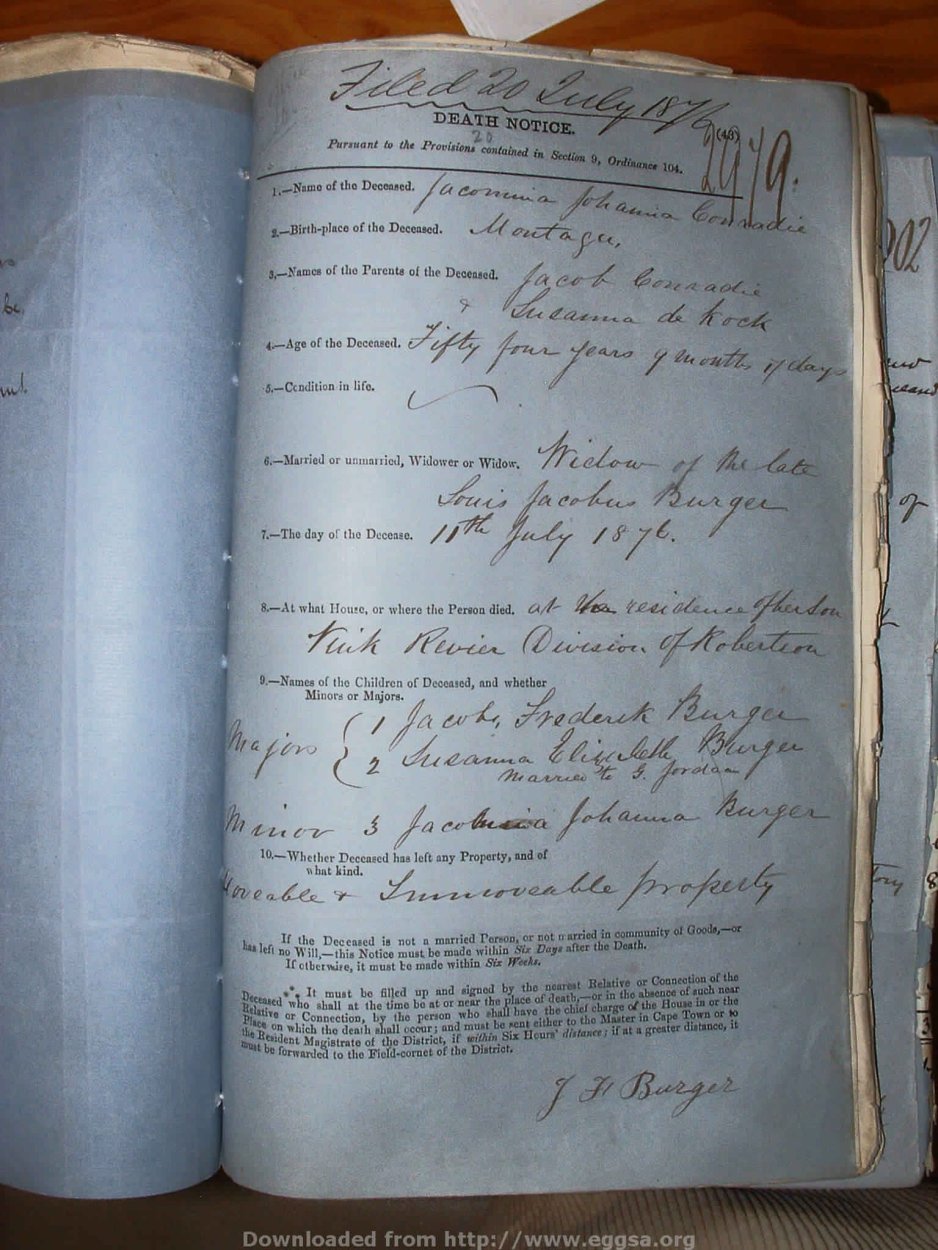 Filed 20 July 1876
DEATH NOTICE.
(43)
20
2979.
Pursuant to the Provisions contained in Section 9, Ordinance 104.
1.—Name of the Deceased. Jacomina Johanna Conradie
2.—Birth-place of the Deceased. Montagu,
3,—Names of the Parents of the Deceased. Jacob Conradie
& Susanna de Kock
4.—Age of the Deceased. Fifty four years 9 months 17 days
5.—Condition in life.
6.—Married or unmarried, Widower or Widow. Widow of the late
Louis Jacobus Burger
7.—The day of the Decease. 11th July 1876.
8.—At what House, or where the Person died. at the residence of her Son
Vink Revier Division of Robertson
9.—Names of the Children of Deceased, and whether
Minors or Majors.
Majors 1 Jacobs Frederik Burger
2 Susanna Elizabeth Burger
Married to G. Jordaan
Minor 3 Jacomina Johanna Burger
10.—Whether Deceased has left any Property, and of
what kind.
Moveable & Immoveable property
If the Deceased is not a married Person, or not married in community of Goods,—or
has left no Will,—this Notice must be made within Six Days after the Death.
If otherwise, it must be made within Six Weeks.
⁂ It must be filled up and signed by the nearest Relative or Connection of the
Deceased who shall at the time be at or near the place of death,—or in the absence of such near
Relative or Connection, by the person who shall have the chief charge of the House in or the
Place on which the death shall occur; and must be sent either to the Master in Cape Town or to
the Resident Magistrate of the District, if within Six Hours' distance; if at a greater distance, it
must be forwarded to the Field-cornet of the District.
J F Burger
Downloaded from http://www.eggsa.org